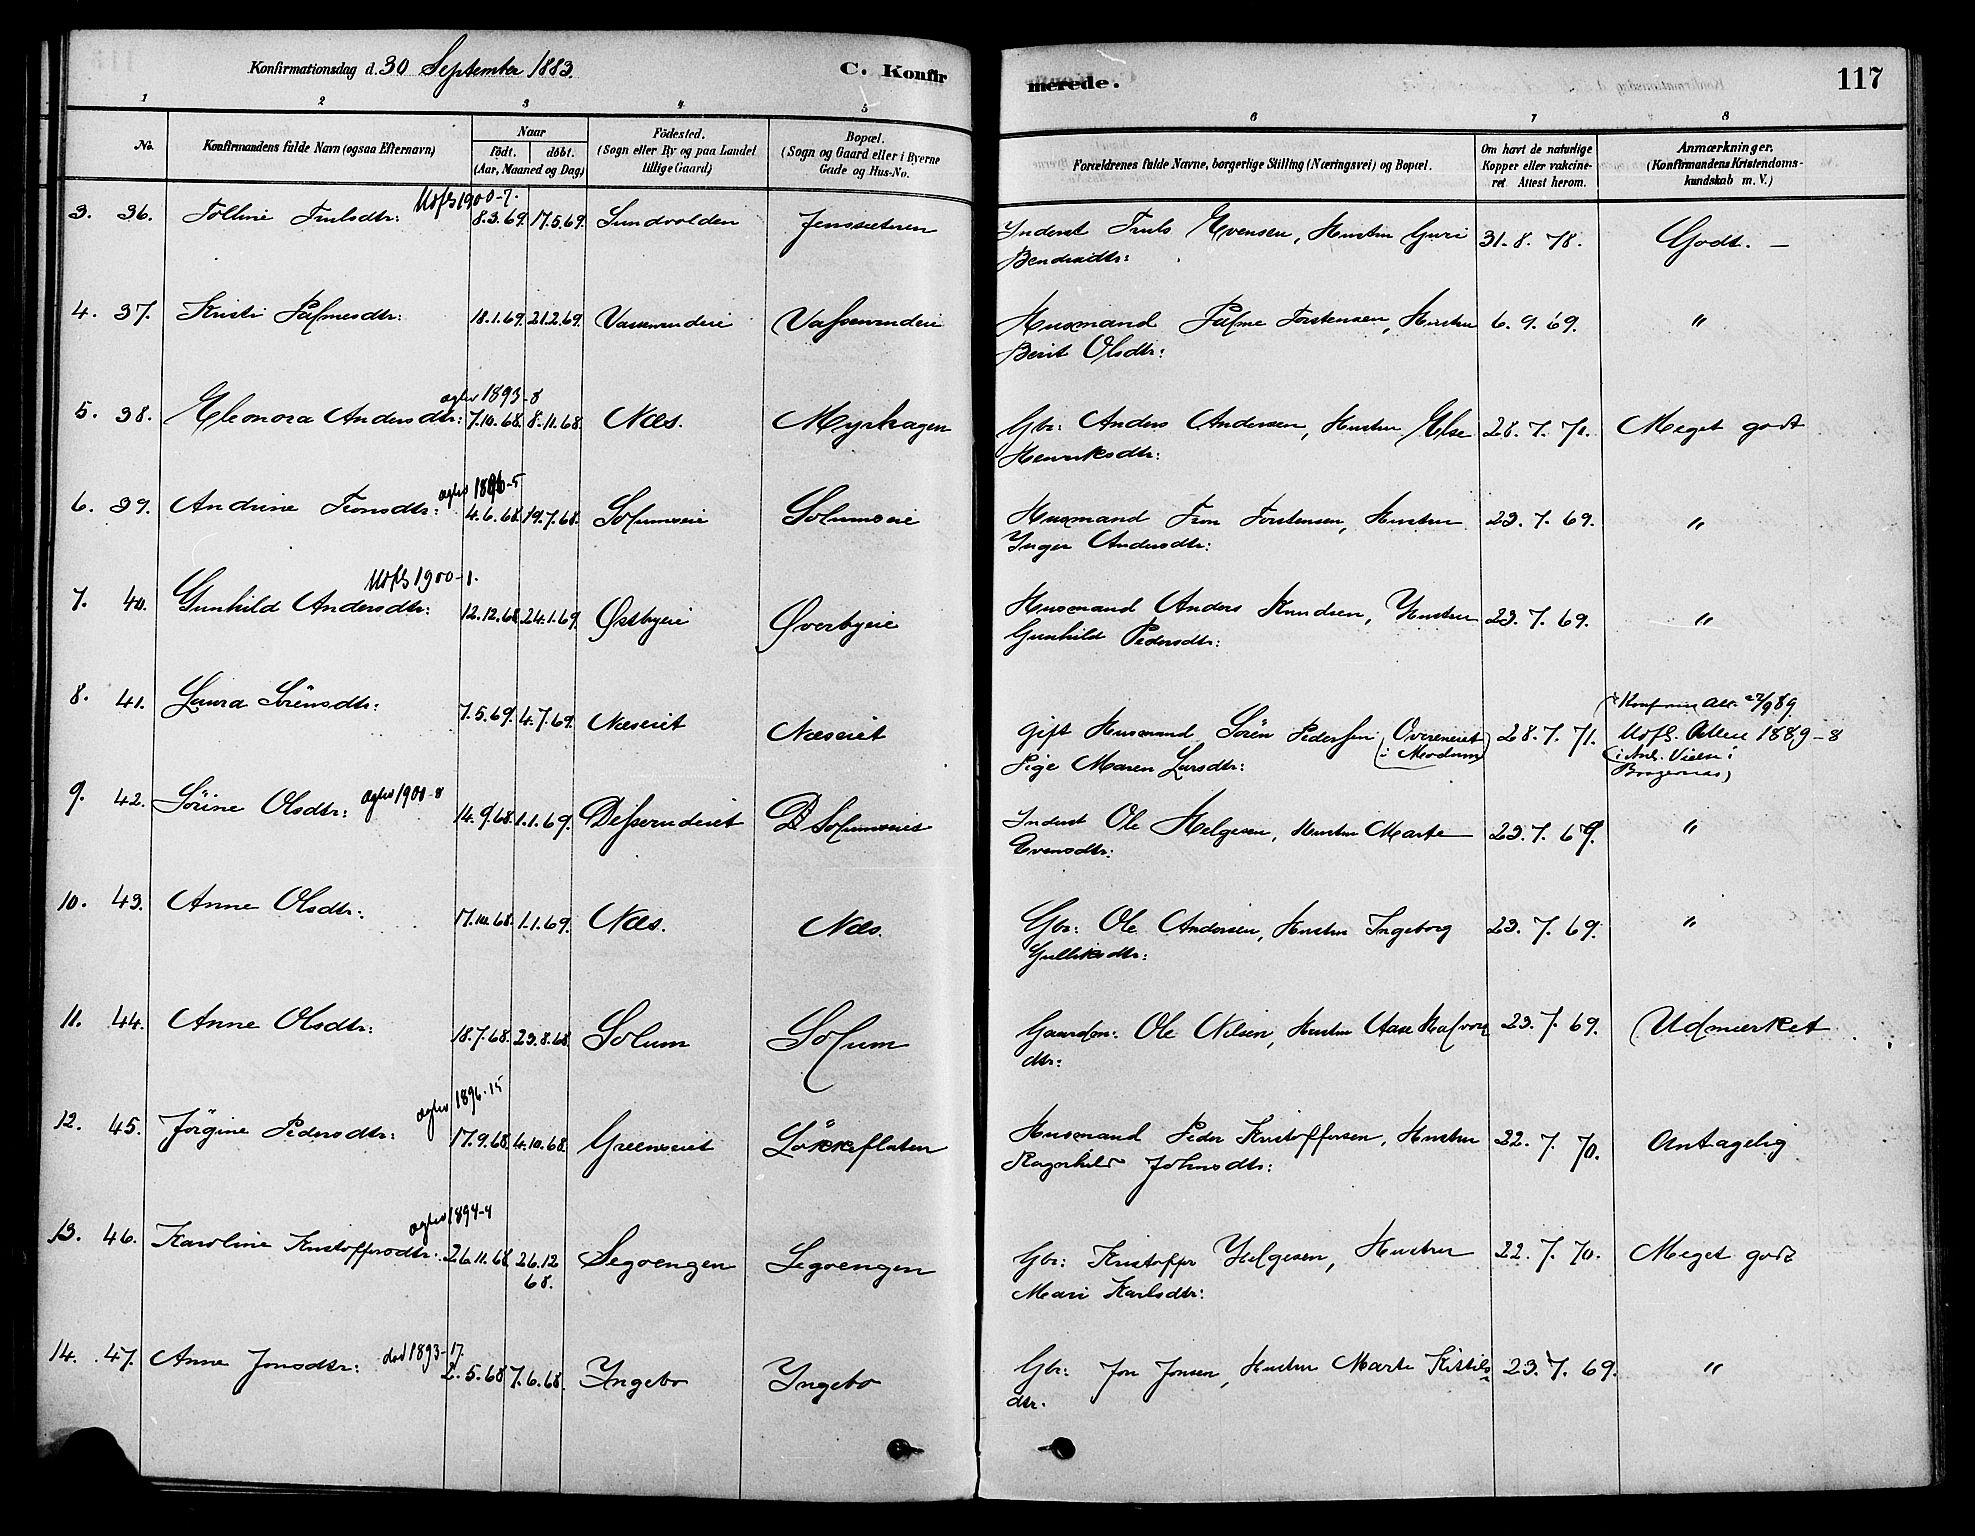 Konfirmationsdag d. 30 September 1883.
C. Konfir
merede.
117
1 2 3 4 5 6 7 8
No.
Konfirmandens fulde Navn (ogsaa Efternavn)
Naar
födt. döbt.
(Aar, Maaned og Dag)
Födested.
(Sogn eller By og paa Landet
tillige Gaard)
Bopæl.
(Sogn og Gaard eller i Byerne
Gade og Hus-No.
Forældrenes fulde Navne, borgerlige Stilling (Næringsvei) og Bopæl.
Om havt de naturlige
Kopper eller vakcine-
ret Attest herom.
Anmærkninger.
(Konfirmandens Kristendoms-
kundskab m. V.)
Udfl 1900-7.
3. 36. Tolline Trulsdtr: 8.3.69. 17.5.69. Sundvolden Jenssæteren Inderst Truls Evensen, Hustru Guri 31. 8. 78. Godt. —
4. 37. Kristi Palmesdtr: 18.1.69. 21.2.69. Vassenrudeie Vassenrudeie Husmand Palme Torstensen, Hustru 6. 9. 69. "
Berit Olsdtr:
agtev 1893-8
5. 38. Eleonora Andersdtr: 7.10.68. 8.11.68. Næs. Myrhagen Gbr: Anders Andersen, Hustru Else 28. 7. 71. Meget godt
Henriksdtr:
agtev 1896-5
6. 39. Andrine Tronsdtr: 4.6.68. 19.7.68. Solumseie Solumseie Husmand Tron Torstensen, Hustru 23. 7. 69. "
Inger Andersdtr:
Udfl 1900-1.
7. 40. Gunhild Andersdtr: 12.12.68. 24.1.69. Østbyeie Øverbyeie Husmand Anders Knudsen, Hustru 23. 7. 69. "
Gunhild Pedersdtr:
8. 41. Laura Sörensdtr: 7.5.69. 4.7.69. Næseiet Næseiet gift Husmand Sören Pedersen (Overeneiet 28. 7. 71. Udfl. Attest 1889-8
i Modum)
Pige Maren Larsdtr:
9. 42. Sörine Olsdtr: agtev 1900-8 14.9.68. 1.1.69. Disserudeiet Solumseiet Inderst Ole Helgesen, Hustru Marte 23. 7. 69. "
Evensdtr:
10. 43. Anne Olsdtr: 17.10.68. 1.1.69. Næs. Næs. Gbr: Ole Andersen, Hustru Ingeborg 23. 7. 69. "
Gulliksdtr:
11. 44. Anne Olsdtr: 18.7.68. 23.8.68. Solum Solum Gaardm: Ole Nilsen, Hustru Aase Halvors 23. 7. 69. Udmærket
dtr:
agtev 1896-15
12. 45. Jörgine Pedersdtr: 17.9.68. 4.10.68. Greenseiet Lökkeflaten Husmand Peder Kristoffersen, Hustru 22. 7. 70. Antagelig
Ragnhild Johnsdtr:
agtev 1894-4
13. 46. Karoline Kristoffersdtr: 26.11.68. 26.12 Segoengen Segoengen Gbr: Kristoffer Helgesen, Hustru 22. 7. 70. Meget godt
68.
Mari Karlsdtr:
14. 47. Anne Jonsdtr: död 1893-17. 2.5.68 7.6.68. Ingebo Ingebo Gbr: Jon Jonsen, Hustru Marte Kittils 23. 7. 69. "
dtr.